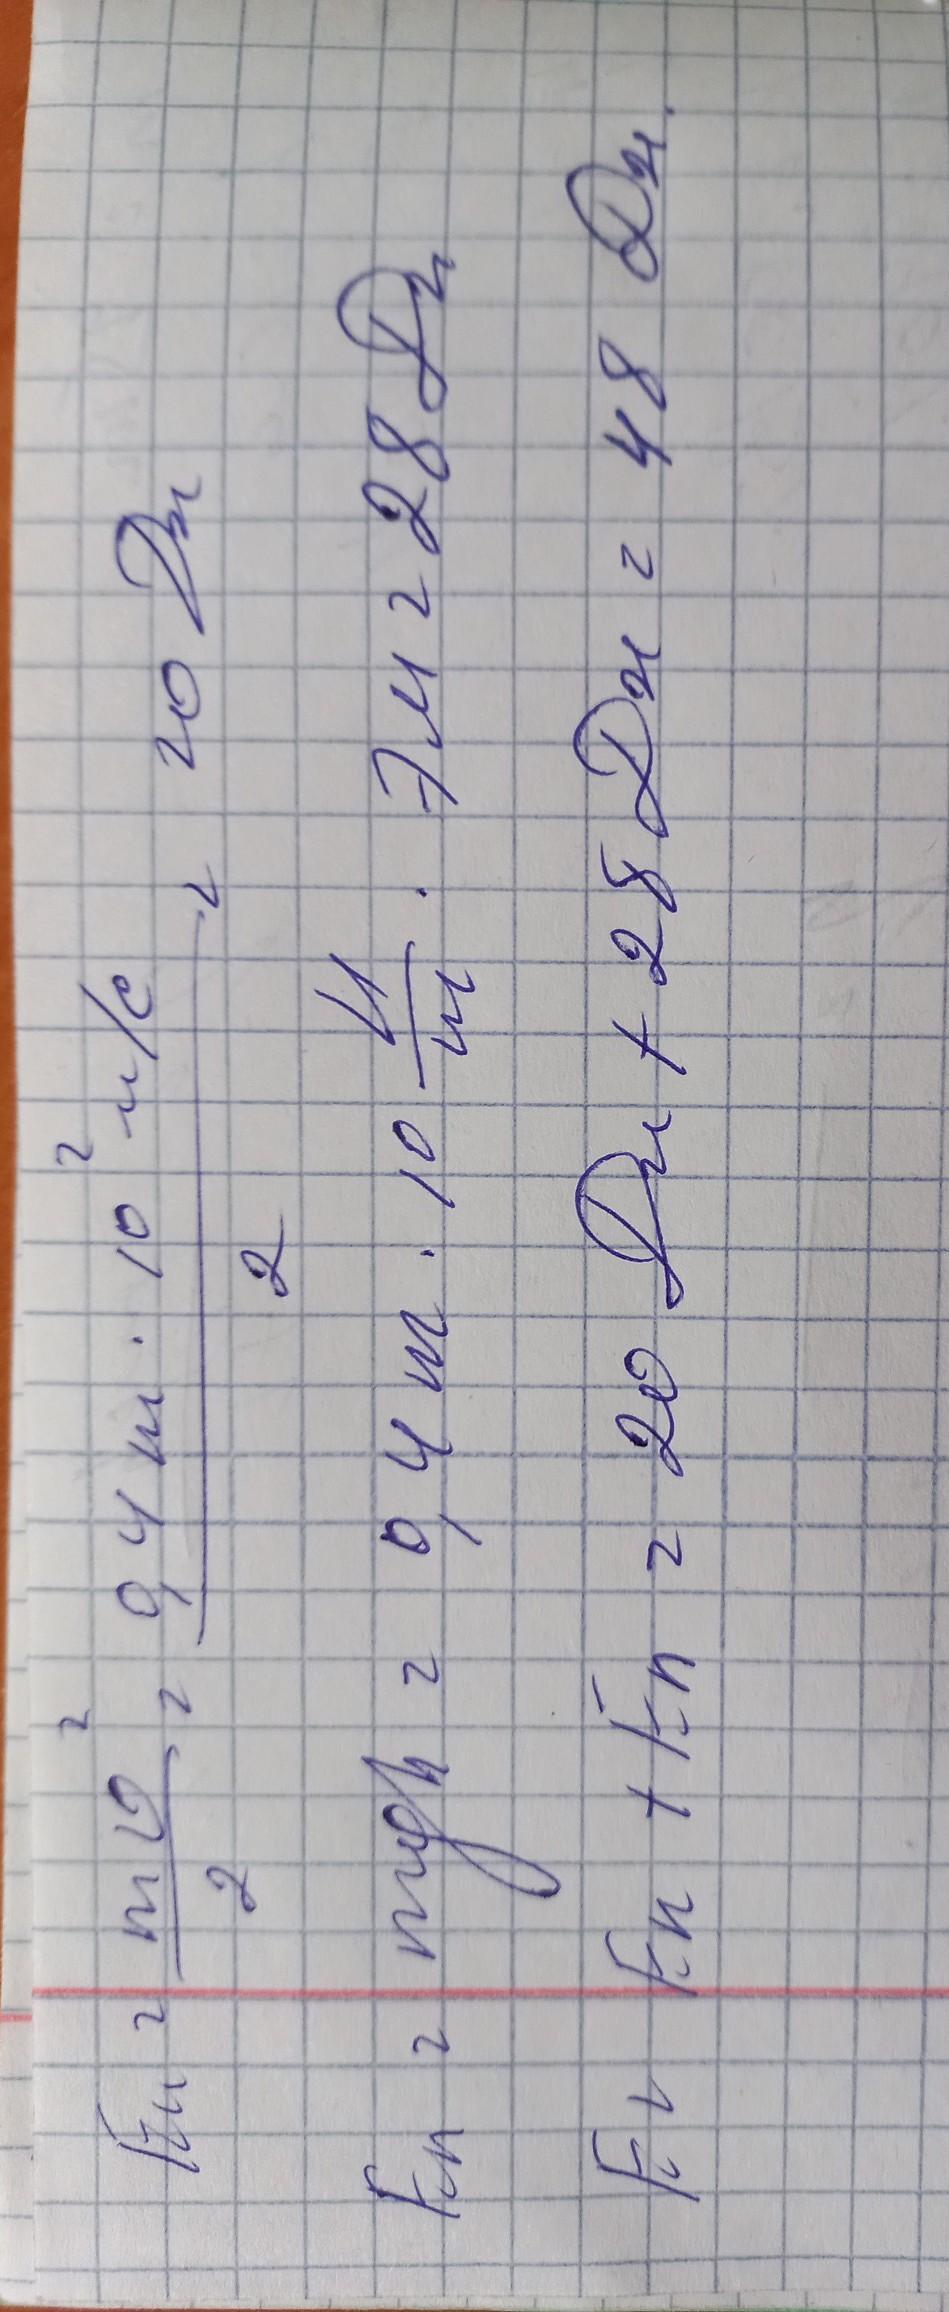 Eк = mv²/2 = 0,4 кг · 10² м/с / 2 = 20 Дж
Eп = mgh = 0,4 кг · 10 Н/кг · 7м = 28 Дж
E = Eк + Eп = 20 Дж + 28 Дж = 48 Дж.